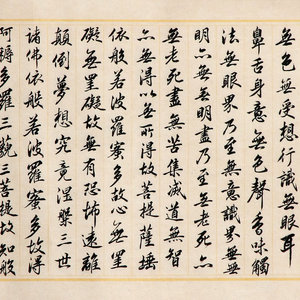 色無受想行識無眼耳
鼻舌身意無色聲香味觸
法無眼界乃至無意識界無無
明亦無無明盡乃至無老死亦
無老死盡無苦集滅道無智
亦無得以無所得故菩提薩埵
依般若波羅蜜多故心無罣
礙無罣礙故無有恐怖遠離
顛倒夢想究竟涅槃三世
諸佛依般若波羅蜜多故得
阿耨多羅三藐三菩提故知般